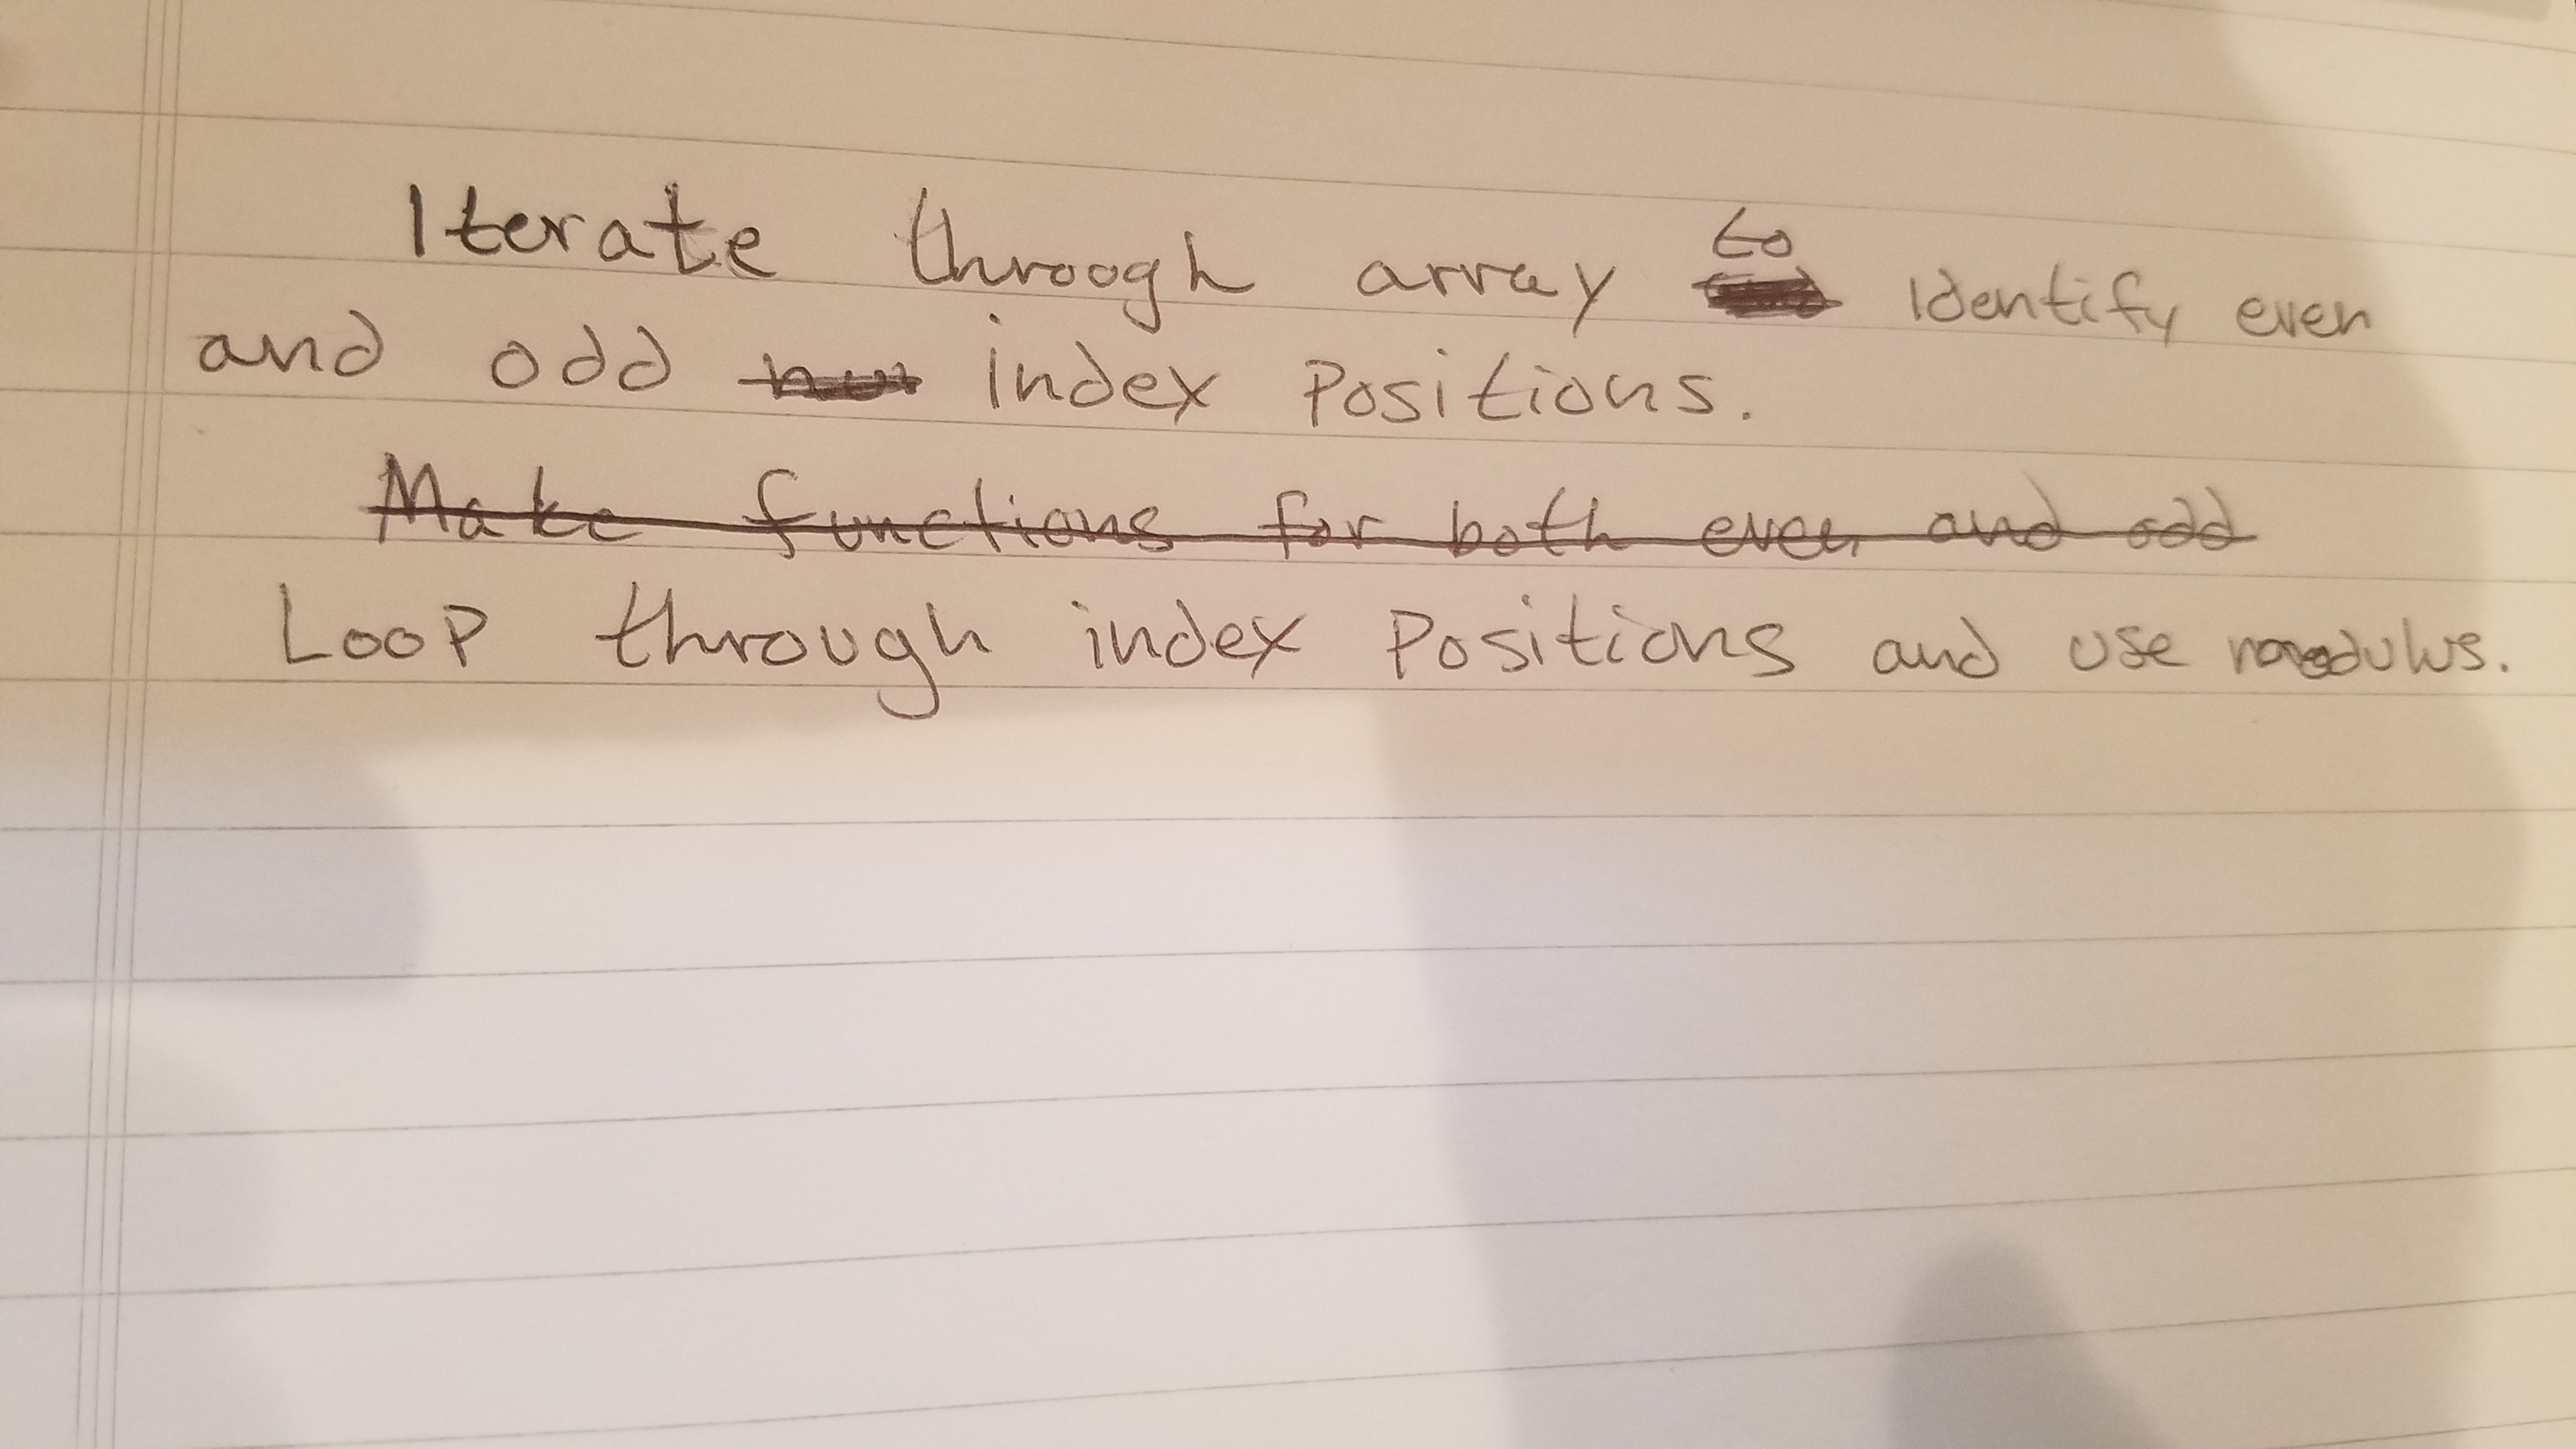 Iterate through array to identify even
and odd index positions.
Make functions for both even and odd
Loop through index positions and use modulus.